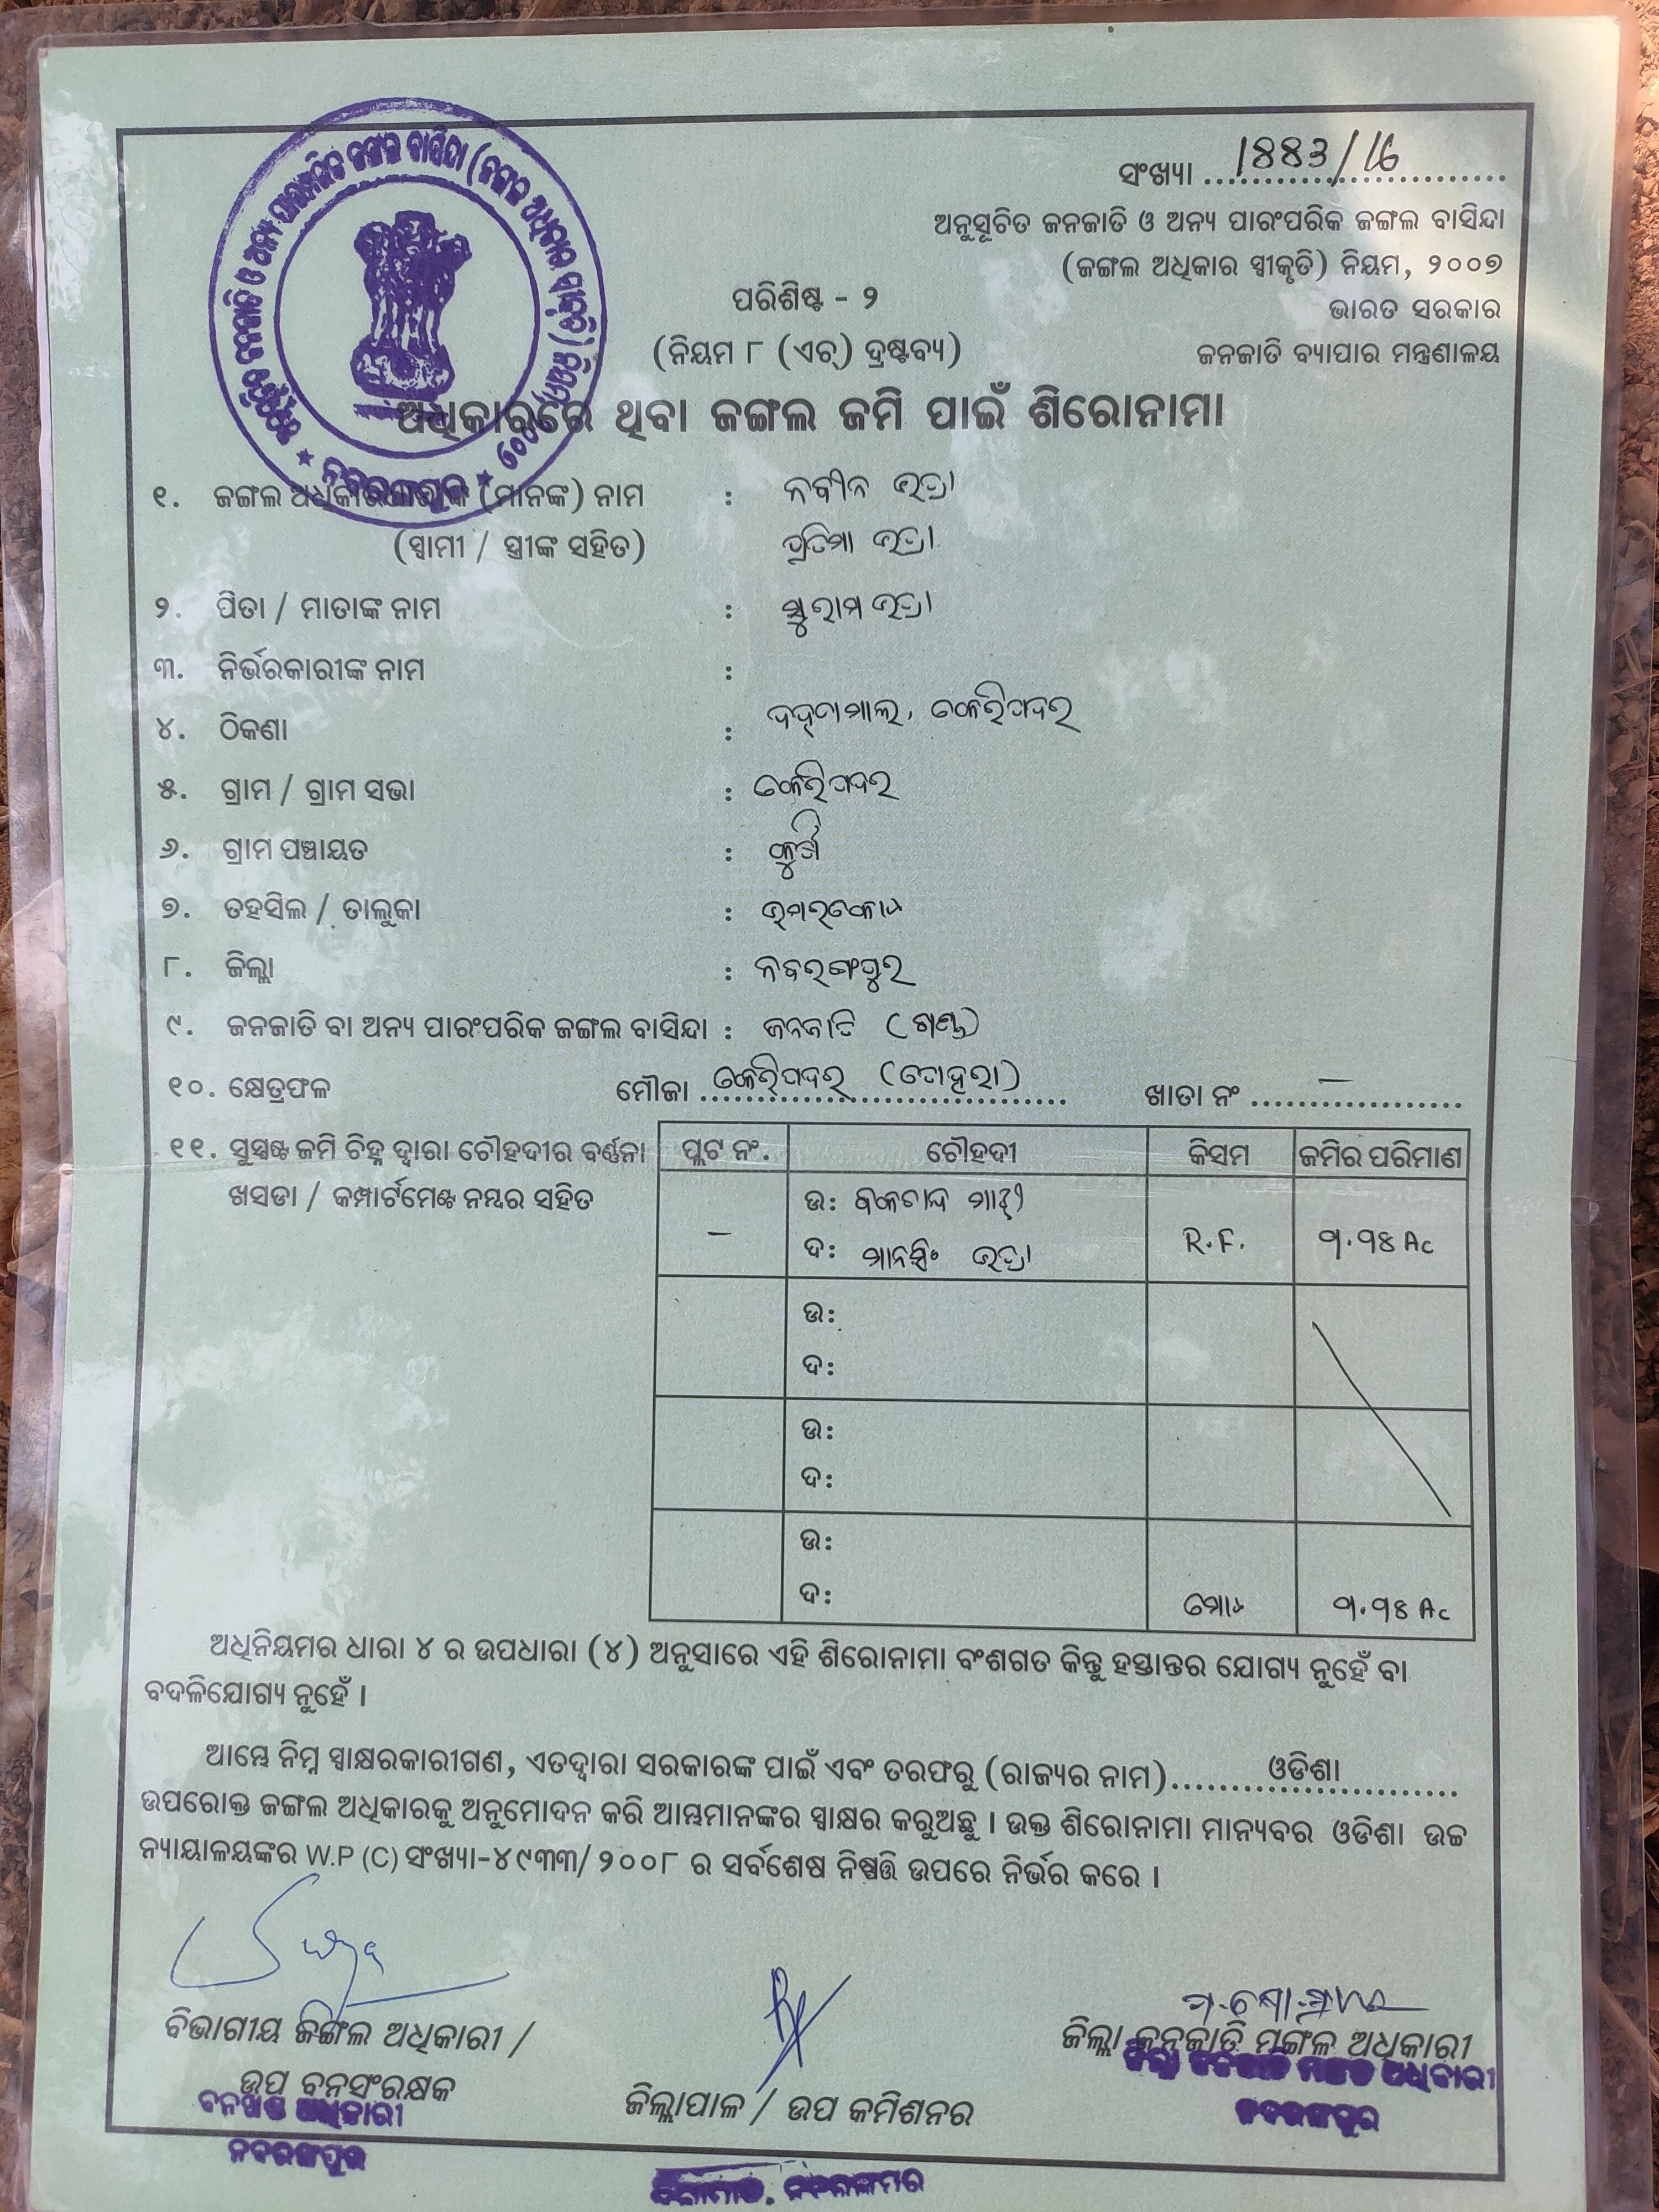 ସଂଖ୍ୟା ..... ୧୫୫୬/16
ଅନୁସୂଚିତ ଜନଜାତି ଓ ଅନ୍ୟ ପାରଂପରିକ ଜଙ୍ଗଲ ବାସିନ୍ଦା
(ଜଙ୍ଗଲ ଅଧିକାର ସ୍ୱୀକୃତି) ନିୟମ, ୨୦୦୭
ଭାରତ ସରକାର
ଜନଜାତି ବ୍ୟାପାର ମନ୍ତ୍ରଣାଳୟ
ପରିଶିଷ୍ଟ - ୨
(ନିୟମ ୮ (ଏଚ୍) ଦ୍ରଷ୍ଟବ୍ୟ)
ଅଧିକାରରେ ଥିବା ଜଙ୍ଗଲ ଜମି ପାଇଁ ଶିରୋନାମା
୧. ଜଙ୍ଗଲ ଅଧିକାରଧାରୀଙ୍କ (ମାନଙ୍କ) ନାମ : ନବୀନ ଭତ୍ରା
(ସ୍ୱାମୀ / ସ୍ତ୍ରୀଙ୍କ ସହିତ) ପ୍ରତିମା ଭତ୍ରା
୨. ପିତା / ମାତାଙ୍କ ନାମ : ସୁରାମ ଭତ୍ରା
୩. ନିର୍ଭରକାରୀଙ୍କ ନାମ :
୪. ଠିକଣା :
୫. ଗ୍ରାମ / ଗ୍ରାମ ସଭା :
୬. ଗ୍ରାମ ପଞ୍ଚାୟତ :
୭. ତହସିଲ / ତାଲୁକା : ଉମରକୋଟ
୮. ଜିଲ୍ଲା : ନବରଙ୍ଗପୁର
୯. ଜନଜାତି ବା ଅନ୍ୟ ପାରଂପରିକ ଜଙ୍ଗଲ ବାସିନ୍ଦା : ଜନଜାତି
୧୦. କ୍ଷେତ୍ରଫଳ ମୌଜା ..... ଖାତା ନଂ ..... –
୧୧. ସୁସ୍ପଷ୍ଟ ଜମି ଚିହ୍ନ ଦ୍ୱାରା ଚୌହଦୀର ବର୍ଣ୍ଣନା
ଖସଡା / କମ୍ପାର୍ଟମେଣ୍ଟ ନମ୍ବର ସହିତ
ପ୍ଲଟ ନଂ. ଚୌହଦୀ କିସମ ଜମିର ପରିମାଣ
– ଉ: R.F. ୩.୩୫ Ac
ଦ: ମାନସିଂ ଭତ୍ରା
ଉ:
ଦ:
ଉ:
ଦ:
ଉ:
ଦ: ମୋଟ ୩.୩୫ Ac
ଅଧିନିୟମର ଧାରା ୪ ର ଉପଧାରା (୪) ଅନୁସାରେ ଏହି ଶିରୋନାମା ବଂଶଗତ କିନ୍ତୁ ହସ୍ତାନ୍ତର ଯୋଗ୍ୟ ନୁହେଁ ବା
ବଦଳିଯୋଗ୍ୟ ନୁହେଁ ।
ଆମ୍ଭେ ନିମ୍ନ ସ୍ୱାକ୍ଷରକାରୀଗଣ, ଏତଦ୍ୱାରା ସରକାରଙ୍କ ପାଇଁ ଏବଂ ତରଫରୁ (ରାଜ୍ୟର ନାମ)..... ଓଡିଶା
ଉପରୋକ୍ତ ଜଙ୍ଗଲ ଅଧିକାରକୁ ଅନୁମୋଦନ କରି ଆମ୍ଭମାନଙ୍କର ସ୍ୱାକ୍ଷର କରୁଅଛୁ । ଉକ୍ତ ଶିରୋନାମା ମାନ୍ୟବର ଓଡିଶା ଉଚ୍ଚ
ନ୍ୟାୟାଳୟଙ୍କର W.P (C) ସଂଖ୍ୟା-୪୯୩୩/୨୦୦୮ ର ସର୍ବଶେଷ ନିଷ୍ପତ୍ତି ଉପରେ ନିର୍ଭର କରେ ।
ବିଭାଗୀୟ ଜଙ୍ଗଲ ଅଧିକାରୀ /
ଉପ ବନସଂରକ୍ଷକ
ବନଖଣ୍ଡ ଅଧିକାରୀ
ନବରଙ୍ଗପୁର
ଜିଲ୍ଲାପାଳ / ଉପ କମିଶନର
ଜିଲ୍ଲା ଜନଜାତି ମଙ୍ଗଳ ଅଧିକାରୀ
ଜିଲ୍ଲା ଜନଜାତି ମଙ୍ଗଳ ଅଧିକାରୀ
ନବରଙ୍ଗପୁର